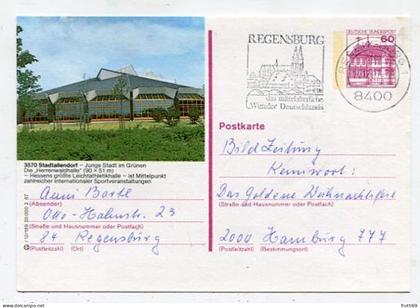 REGENSBURG
das mittelalterliche
Wunder Deutschlands
DEUTSCHE BUNDESPOST
60
8400
3570 Stadtallendorf – Junge Stadt im Grünen
Die „Herrenwaldhalle" (90 × 51 m)
– Hessens größte Leichtathletikhalle – ist Mittelpunkt
zahlreicher internationaler Sportveranstaltungen
Postkarte
Bild Zeitung
Kennwort:
Das Goldene
(Straße und Hausnummer oder Postfach)
2000 Hamburg 777
(Postleitzahl) (Bestimmungsort)
(Absender)
Otto-Hahnstr. 23
(Straße und Hausnummer oder Postfach)
84 Regensburg
(Postleitzahl) (Ort)